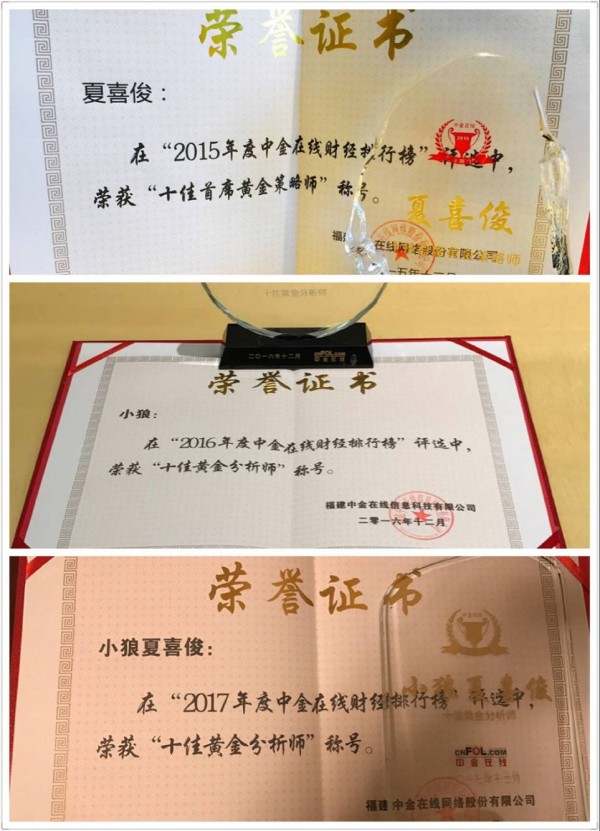 荣誉证书
夏喜俊：
在“2015年度中金在线财经排行榜”评选中，
荣获“十佳首席黄金策略师”称号。
夏喜俊
十佳黄金分析师
二〇一六年十二月
CNFOL.COM
中金在线
荣誉证书
小狼：
在“2016年度中金在线财经排行榜”评选中，
荣获“十佳黄金分析师”称号。
福建中金在线信息科技有限公司
二零一六年十二月
荣誉证书
小狼夏喜俊：
在“2017年度中金在线财经排行榜”评选中，
荣获“十佳黄金分析师”称号。
小狼夏喜俊
十佳黄金分析师
CNFOL.COM
中金在线
福建中金在线网络股份有限公司